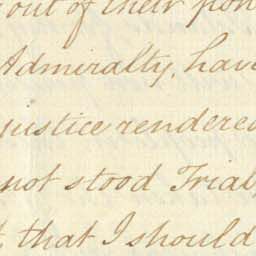 out of their pow
Admiralty, have
justice rendered
not stood Trial,
that I should